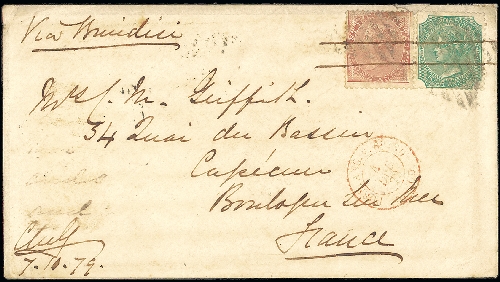 Via Brindisi
Mrs J. M. Griffith.
34 Quai du Bassin
Capécure
Boulogne sur Mer
France
7.10.79.